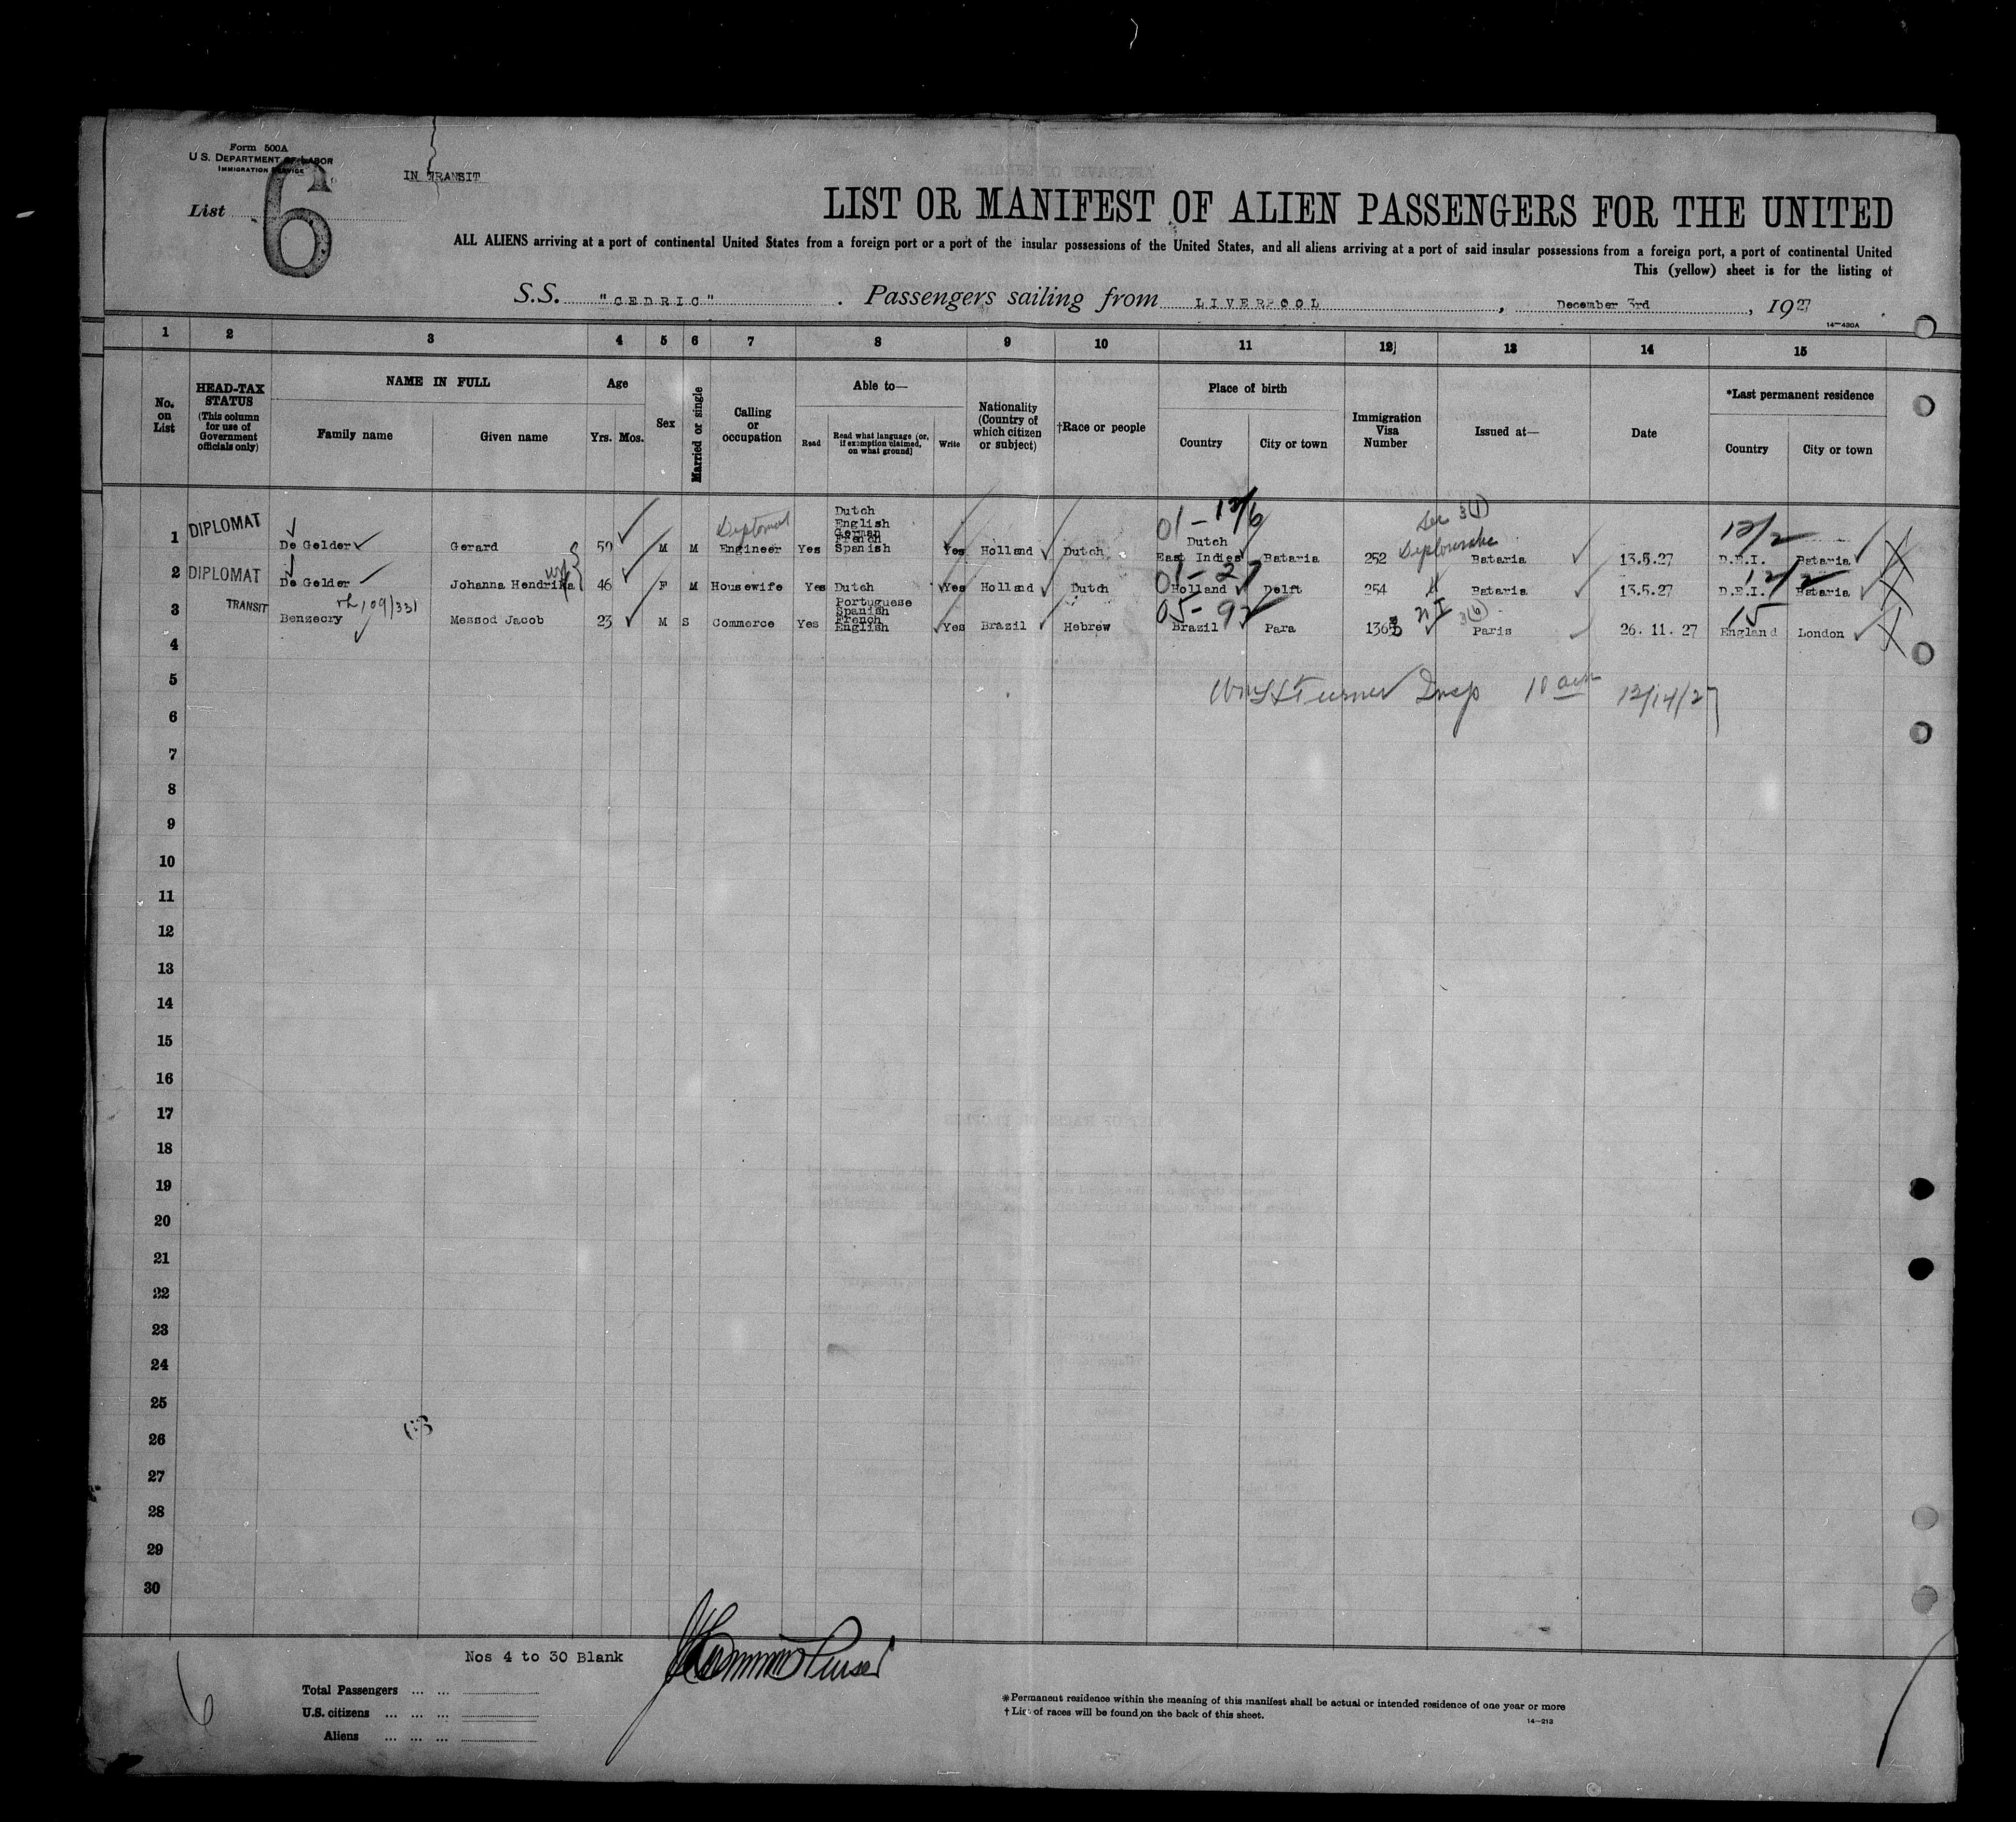 Form 500A
U.S. DEPARTMENT OF LABOR
IMMIGRATION SERVICE
IN TRANSIT
List 6
LIST OR MANIFEST OF ALIEN PASSENGERS FOR THE UNITED
ALL ALIENS arriving at a port of continental United States from a foreign port or a port of the insular possessions of the United States, and all aliens arriving at a port of said insular possessions from a foreign port, a port of continental United
This (yellow) sheet is for the listing of
S.S. "CEDRIC". Passengers sailing from LIVERPOOL, December 3rd, 1927
14-430A
1 2 3 4 5 6 7 8 9 10 11 12 13 14 15
No. on List
HEAD-TAX STATUS
(This column for use of Government officials only)
NAME IN FULL
Family name
Given name
Age
Yrs. Mos.
Sex
Married or single
Calling or occupation
Able to—
Read
Read what language (or, if exemption claimed, on what ground)
Write
Nationality (Country of which citizen or subject)
†Race or people
Place of birth
Country
City or town
Immigration Visa Number
Issued at—
Date
*Last permanent residence
Country
City or town
Dutch
English
German
French
Diplomat
01-12/6
Sec 3(1)
12/2
1 DIPLOMAT De Gelder Gerard M M Engineer Yes Spanish Yes Holland Dutch Dutch East Indies Bataria 252 Bataria 13.5.27 D.E.I. Bataria
wife
01-27
12/2
2 DIPLOMAT De Gelder Johanna Hendrika 46 F M Housewife Yes Dutch Yes Holland Dutch Holland Delft 254 Bataria 13.5.27 D.E.I. Bataria
Portuguese
Spanish
French
109/331
3(6)
15
3 TRANSIT Benzecry Messod Jacob 23 M S Commerce Yes English Yes Brazil Hebrew Brazil Para Paris 26.11.27 England London
4
5 Turner Insp 10 am 12/14/27
6
7
8
9
10
11
12
13
14
15
16
17
18
19
20
21
22
23
24
25
26
27
28
29
30
Nos 4 to 30 Blank
Purser
6
Total Passengers ... ...
U.S. citizens ... ... ...
Aliens ... ... ...
*Permanent residence within the meaning of this manifest shall be actual or intended residence of one year or more
†List of races will be found on the back of this sheet.
14-213